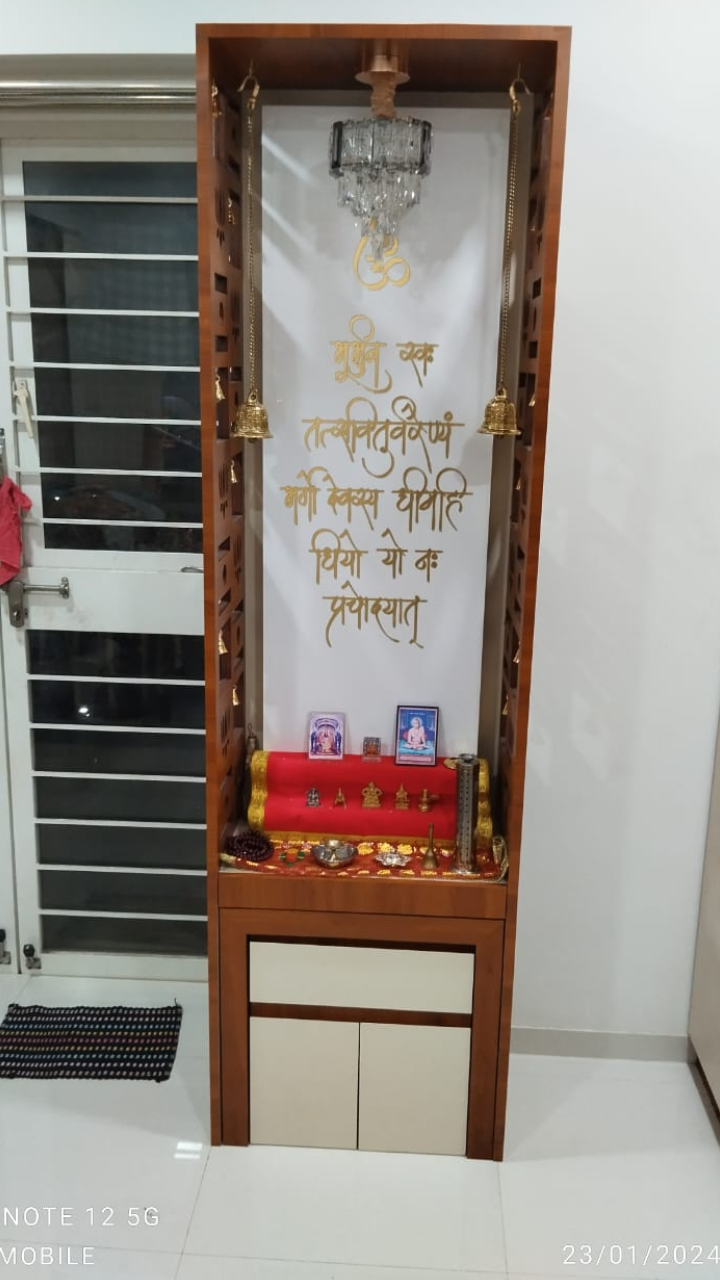 ॐ
भूर्भुव स्वः
तत्सवितुर्वरेण्यं
भर्गो देवस्य धीमहि
धियो यो नः
प्रचोदयात्
NOTE 12 5G
MOBILE 23/01/2024